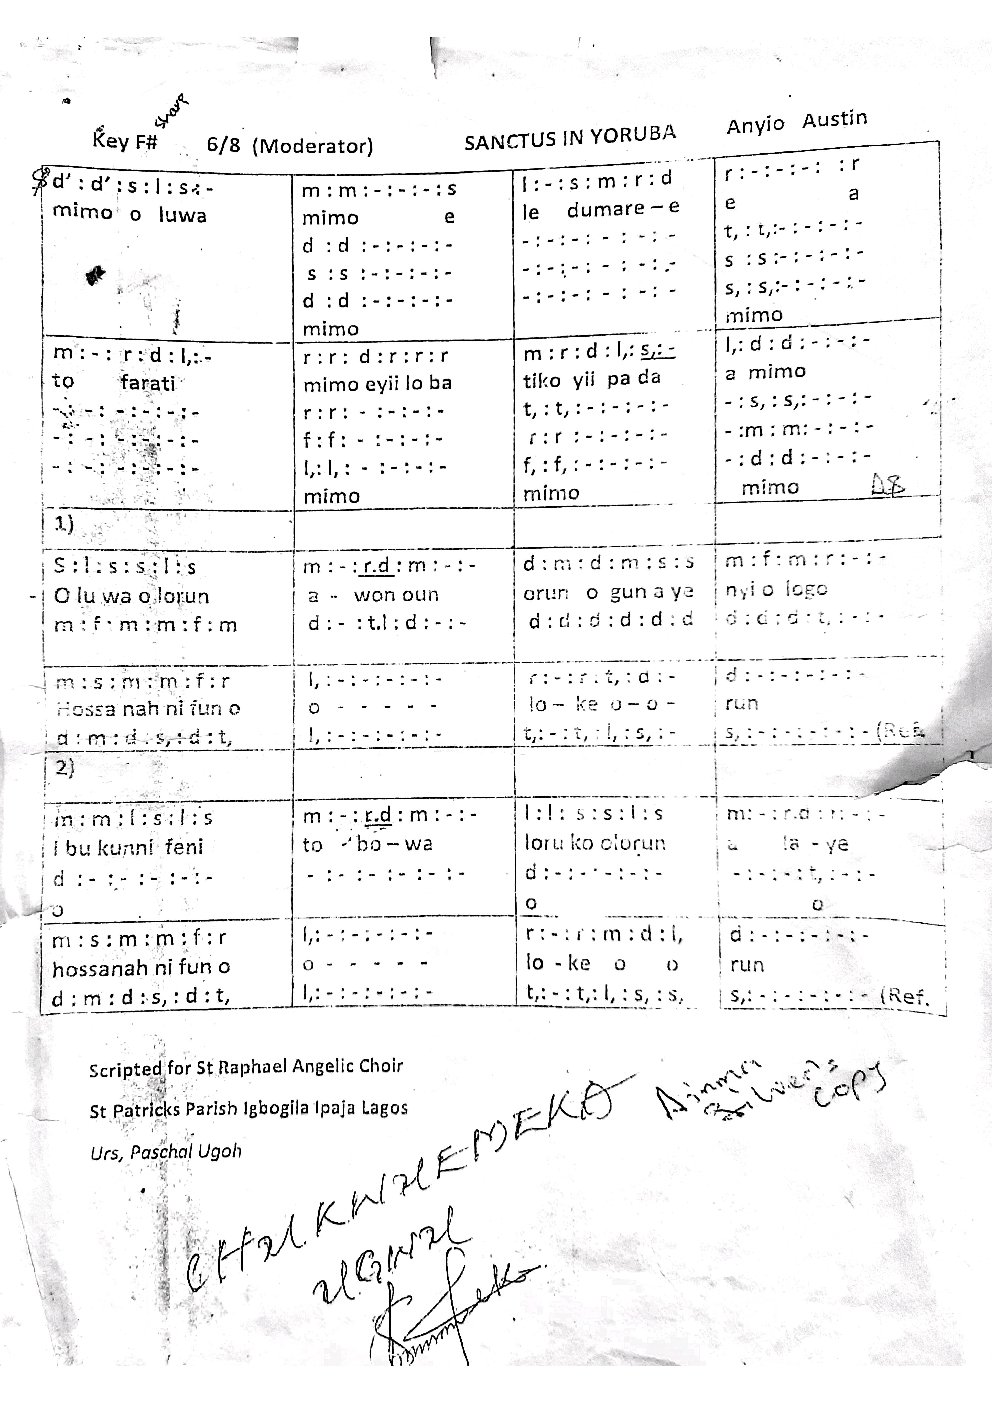 Sharp
Key F# 6/8 (Moderator) SANCTUS IN YORUBA Anyio Austin
d' : d' : s : l : s : -
mimo o luwa
m : m : - : - : - : s
mimo e
d : d : - : - : - : -
s : s : - : - : - : -
d : d : - : - : - : -
mimo
l : - : s : m : r : d
le dumare – e
- : - : - : - : - : -
- : - : - : - : - : -
- : - : - : - : - : -
r : - : - : - : : r
e a
t, : t,: - : - : - : -
s : s : - : - : - : -
s, : s,: - : - : - : -
mimo
m : - : r : d : l,: -
to farati
- : - : - : - : - : -
- : - : - : - : - : -
- : - : - : - : - : -
r : r : d : r : r : r
mimo eyii lo ba
r : r : - : - : - : -
f : f : - : - : - : -
l,: l, : - : - : - : -
mimo
m : r : d : l,: s,: -
tiko yii pa da
t, : t, : - : - : - : -
r : r : - : - : - : -
f, : f, : - : - : - : -
mimo
l,: d : d : - : - : -
a mimo
- : s, : s,: - : - : -
- :m : m: - : - : -
- : d : d : - : - : -
mimo
1)
S : l : s : s : l : s
O lu wa o lorun
m : f : m : m : f : m
m : - : r.d : m : - : -
a - won oun
d : - : t.l : d : - : -
d : m : d : m : s : s
orun o gun a ye
d : d : d : d : d : d
m : f : m : r : - : -
nyi o logo
d : d : d : t, : - : -
m : s : m : m : f : r
Hossa nah ni fun o
d : m : d : s, : d : t,
l, : - : - : - : - : -
o - - - - -
l, : - : - : - : - : -
r : - : r : t, : d : -
lo – ke o – o -
t,: - : t, : l, : s, : -
d : - : - : - : - : -
run
s, : - : - : - : - : - (Ref.
2)
m : m : l : s : l : s
I bu kunni feni
d : - : - : - : - : -
o
m : - : r.d : m : - : -
to - bo – wa
- : - : - : - : - : -
l : l : s : s : l : s
loru ko olorun
d : - : - : - : - : -
o
m: - : r.d : r : - : -
a la - ye
- : - : - : t, : - : -
o
m : s : m : m : f : r
hossanah ni fun o
d : m : d : s, : d : t,
l,: - : - : - : - : -
o - - - - -
l,: - : - : - : - : -
r : - : r : m : d : l,
lo - ke o o
t,: - : t,: l, : s, : s,
d : - : - : - : - : -
run
s,: - : - : - : - : - (Ref.
Scripted for St Raphael Angelic Choir
St Patricks Parish Igbogila Ipaja Lagos
Urs, Paschal Ugoh
copy
CHUKWUEMEKA
UGWU